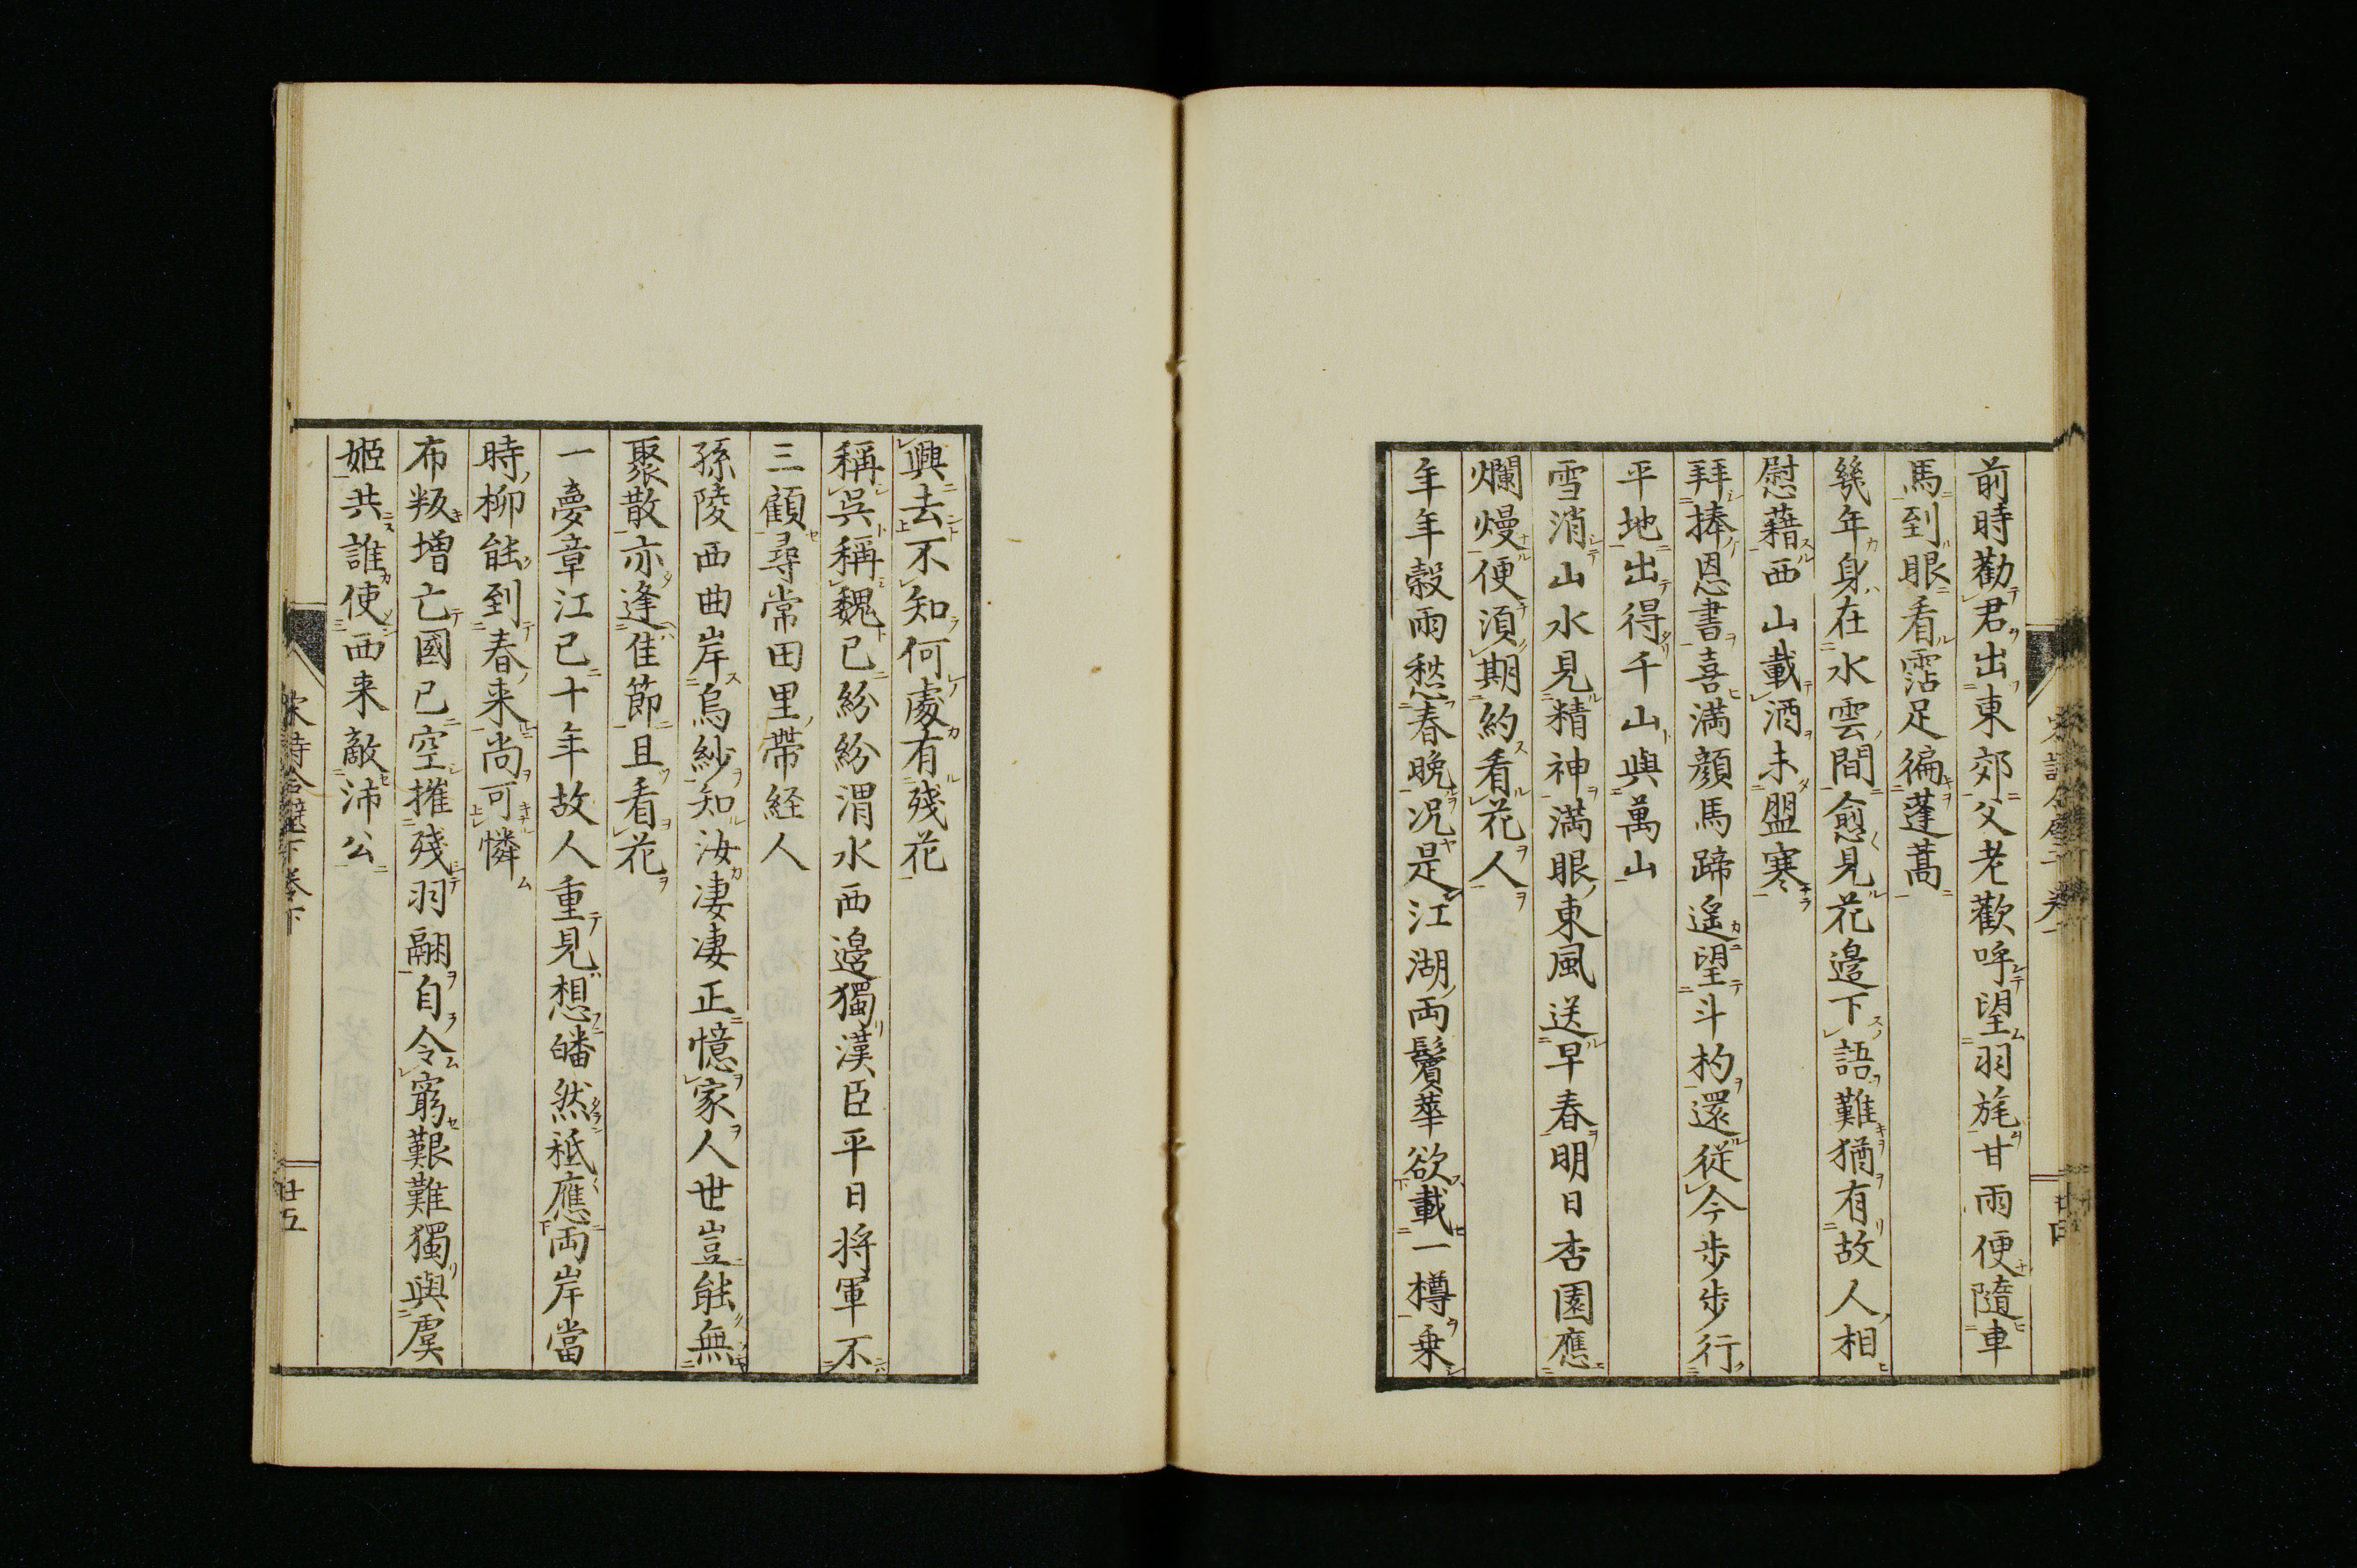 前時勸君出東郊父老歡呼望羽旄甘雨便隨車
馬到眼看霑足徧蓬蒿
幾年身在水雲間愈見花邉下語難猶有故人相
慰藉西山載酒未盟寒
拜捧恩書喜滿顔馬蹄遥望斗杓還從今歩歩行
平地出得千山與萬山
雪消山水見精神満眼東風送早春明日杏園應
爛熳便湏期約看花人
年年榖雨愁春晩况是江湖両鬢華欲載一樽乗
興去不知何處有殘花
稱呉稱魏已紛紛渭水西邉獨漢臣平日将軍不
三顧尋常田里帶経人
孫陵西曲岸烏紗知汝凄凄正憶家人世豈能無
聚散亦逢佳節且看花
一夣章江已十年故人重見想皤然祗應両岸當
時柳能到春来尚可憐
布叛増亡國已空摧殘羽翮自令窮艱難獨與虞
姬共誰使西来敵沛公
宋詩合璧下巻下
廿五